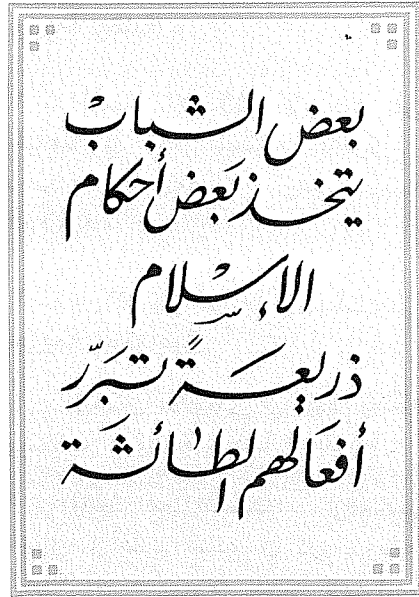 بعض الشباب
يتخذ بَعض أحكام
الإسلام
ذريعَـةً تبَرّر
أفعَالهم الطائشَة